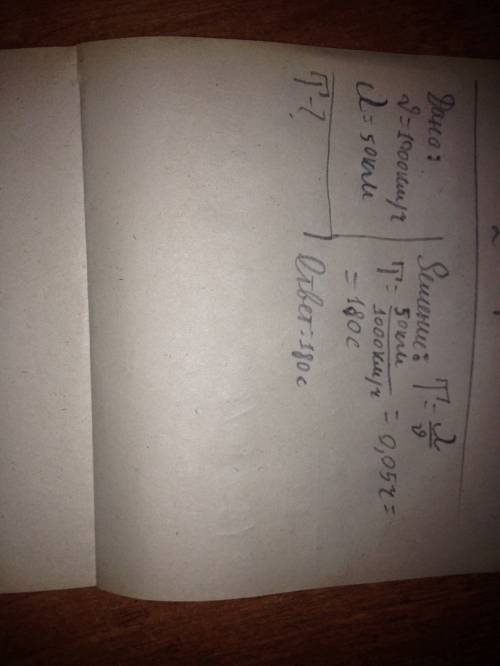 Дано:
υ=1000км/ч
λ=50км
T-?
Решение: T=λ/υ
T=50км/1000км/ч=0,05ч=
=180с
Ответ:180с